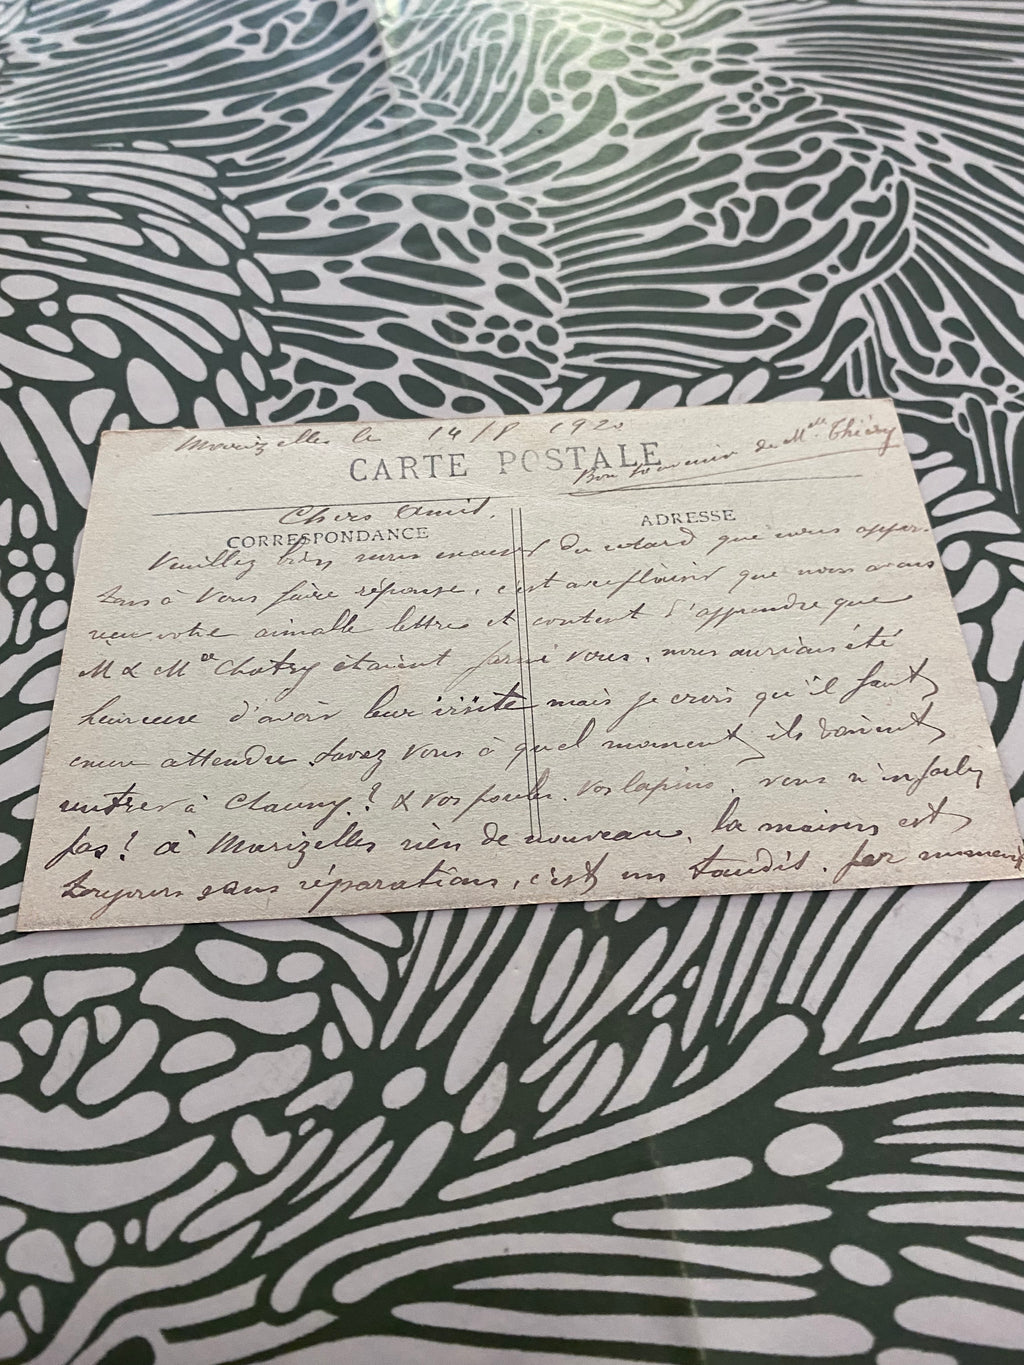 Marizelles le 14/8 1920
CARTE POSTALE
Bon souvenir de Melle Thiéry
Chers Amis.
CORRESPONDANCE
ADRESSE
Veuillez bien nous excuser du retard que nous appor-
tons à vous faire réponse, c'est avec plaisir que nous avons
reçu votre aimable lettre et content d'apprendre que
M & Me Chatry étaient parmi vous, nous aurions été
heureuse d'avoir leur visite mais je crois qu'il faut
encore attendre savez vous à quel moment ils doivent
rentrer à Chauny? & vos poules, vos lapins, vous n'en parlez
pas! à Marizelles rien de nouveau, la maison est
toujours sans réparations, c'est un taudis. par moment